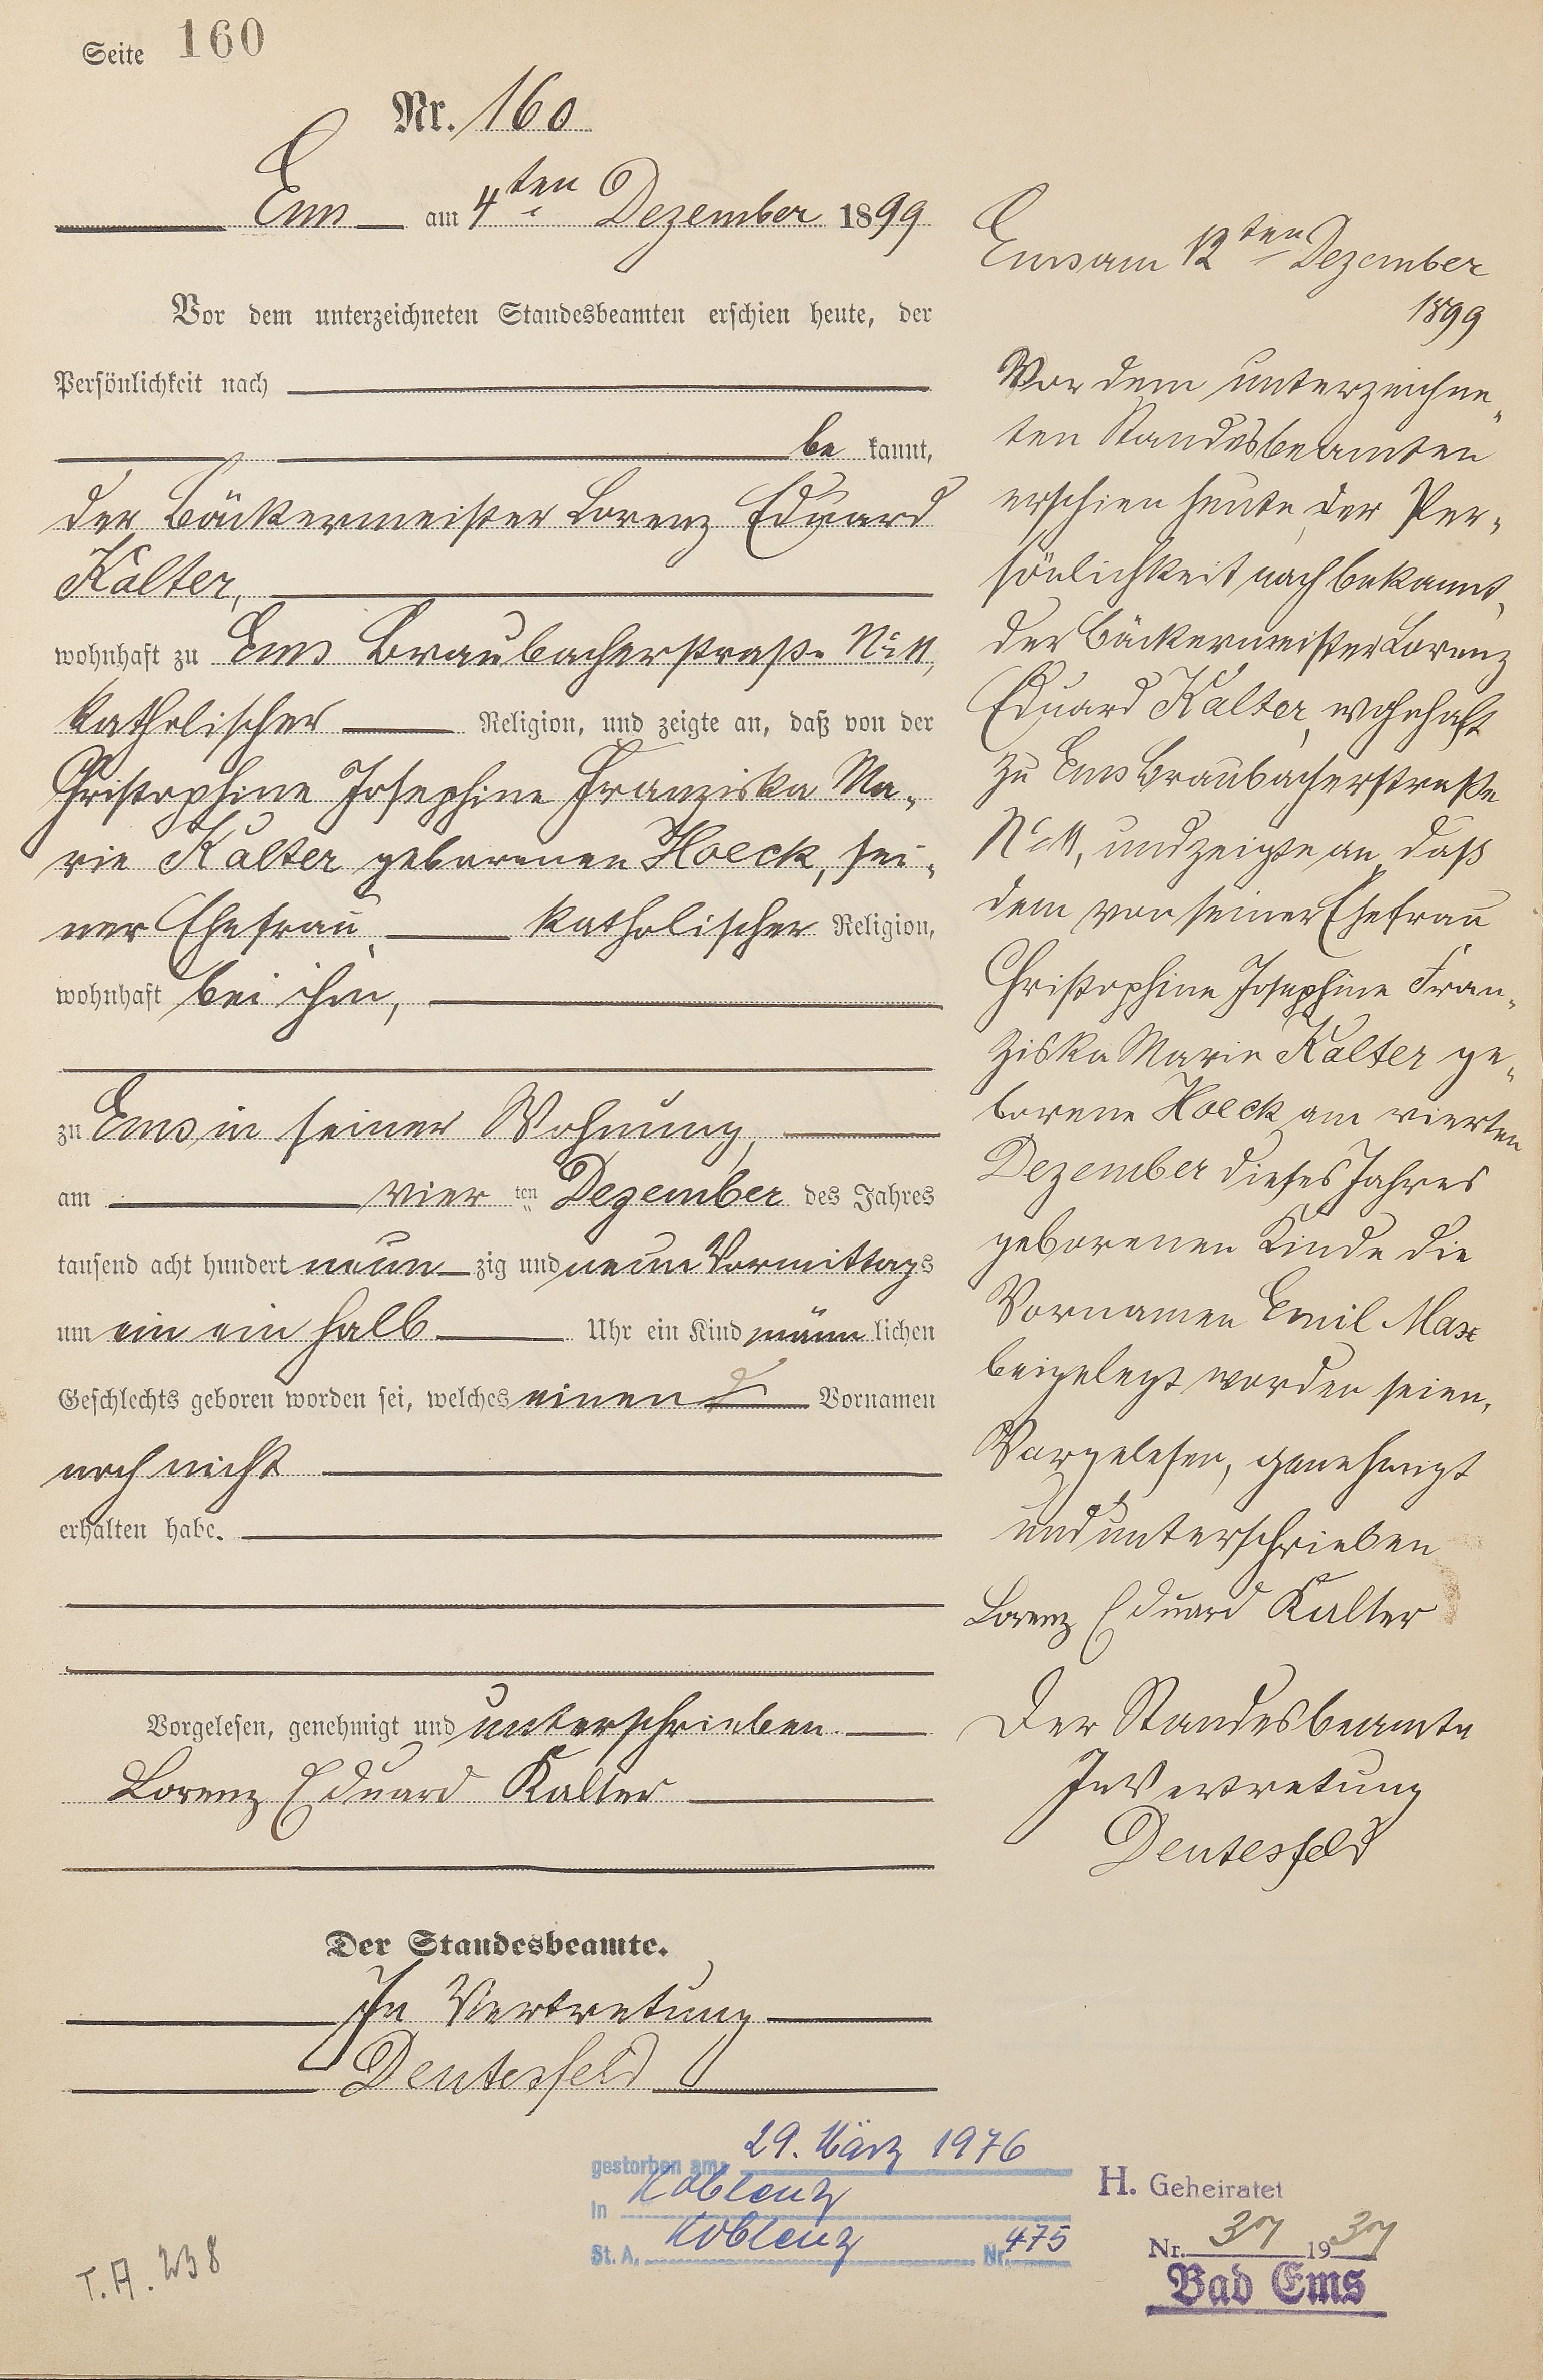 Seite 160
Nr. 160
Ems am 4ten Dezember 1899
Vor dem unterzeichneten Standesbeamten erschien heute, der
Persönlichkeit nach
be kannt,
der Bäckermeister Lorenz Eduard
Kalter,
wohnhaft zu Ems Braubacherstraße No 11,
katholischer Religion, und zeigte an, daß von der
Christophine Josephine Franziska Ma-
rie Kalter geborenen Hoeck, sei-
ner Ehefrau, katholischer Religion,
wohnhaft bei ihm,
zu Ems in seiner Wohnung,
am vier ten Dezember des Jahres
tausend acht hundert neun zig und neun Vormittags
um ein ein halb Uhr ein Kind männ lichen
Geschlechts geboren worden sei, welches einen Vornamen
noch nicht
erhalten habe.
Vorgelesen, genehmigt und unterschrieben.
Lorenz Eduard Kalter
Der Standesbeamte.
In Vertretung
Deutesfeld
Ems am 12ten Dezember
1899
Vor dem unterzeichne-
ten Standesbeamten
erschien heute, der Per-
sönlichkeit nach bekannt,
der Bäckermeister Lorenz
Eduard Kalter, wohnhaft
zu Ems Braubacherstraße
No 11, und zeigte an, daß
dem von seiner Ehefrau
Christophine Josephine Fran-
ziska Marie Kalter ge-
borene Hoeck am vierten
Dezember dieses Jahres
geborenen Kinde die
Vornamen Emil Max
beigelegt worden seien.
Vorgelesen, genehmigt
und unterschrieben
Lorenz Eduard Kalter
Der Standesbeamte
In Vertretung
Deutesfeld
gestorben am: 29. März 1976
in Koblenz
St. A. Koblenz Nr. 475
H. Geheiratet
Nr. 37 1937
Bad Ems
T.A. 238